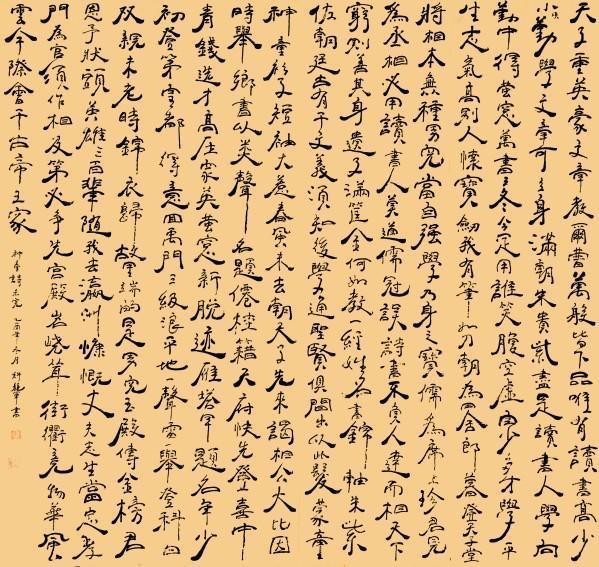 天子重英豪文章教爾曹萬般皆下品唯有讀書高少
小須勤學文章可立身滿朝朱貴紫盡是讀書人學向
勤中得螢窗萬書三冬今足用誰笑腹空虛自少多才學平
生志氣高別人懷寶劍我有筆如刀朝為田舍郎暮登天子堂
將相本無種男兒當自强學乃身之寶儒為席上珍君見
為丞相必用讀書人莫道儒冠誤詩書不負人達而相天下
窮則善其身遺子滿籯金何如教一經姓名書錦軸朱紫
佐朝廷古有千文義須知後學通聖賢俱間出以此發蒙童
神童衫子短袖大惹春風未去朝天子先來謁相公大比因
時舉鄉書以類聲名題僊桂籍天府快先登喜中
青錢選才高壓眾英螢窗新脫迹雁塔早題名年少
初登第皇都得意回禹門三級浪平地一聲雷一舉登科日
双親未老時錦衣歸故里端的是男兒玉殿傳金榜君
恩予狀頭英雄三百輩隨我去瀛洲慷慨丈夫志生當忠孝
門為官須作相及第必爭先宮殿岧嶢聳街衢竞物華風
雲今際會千古帝王家
神童詩